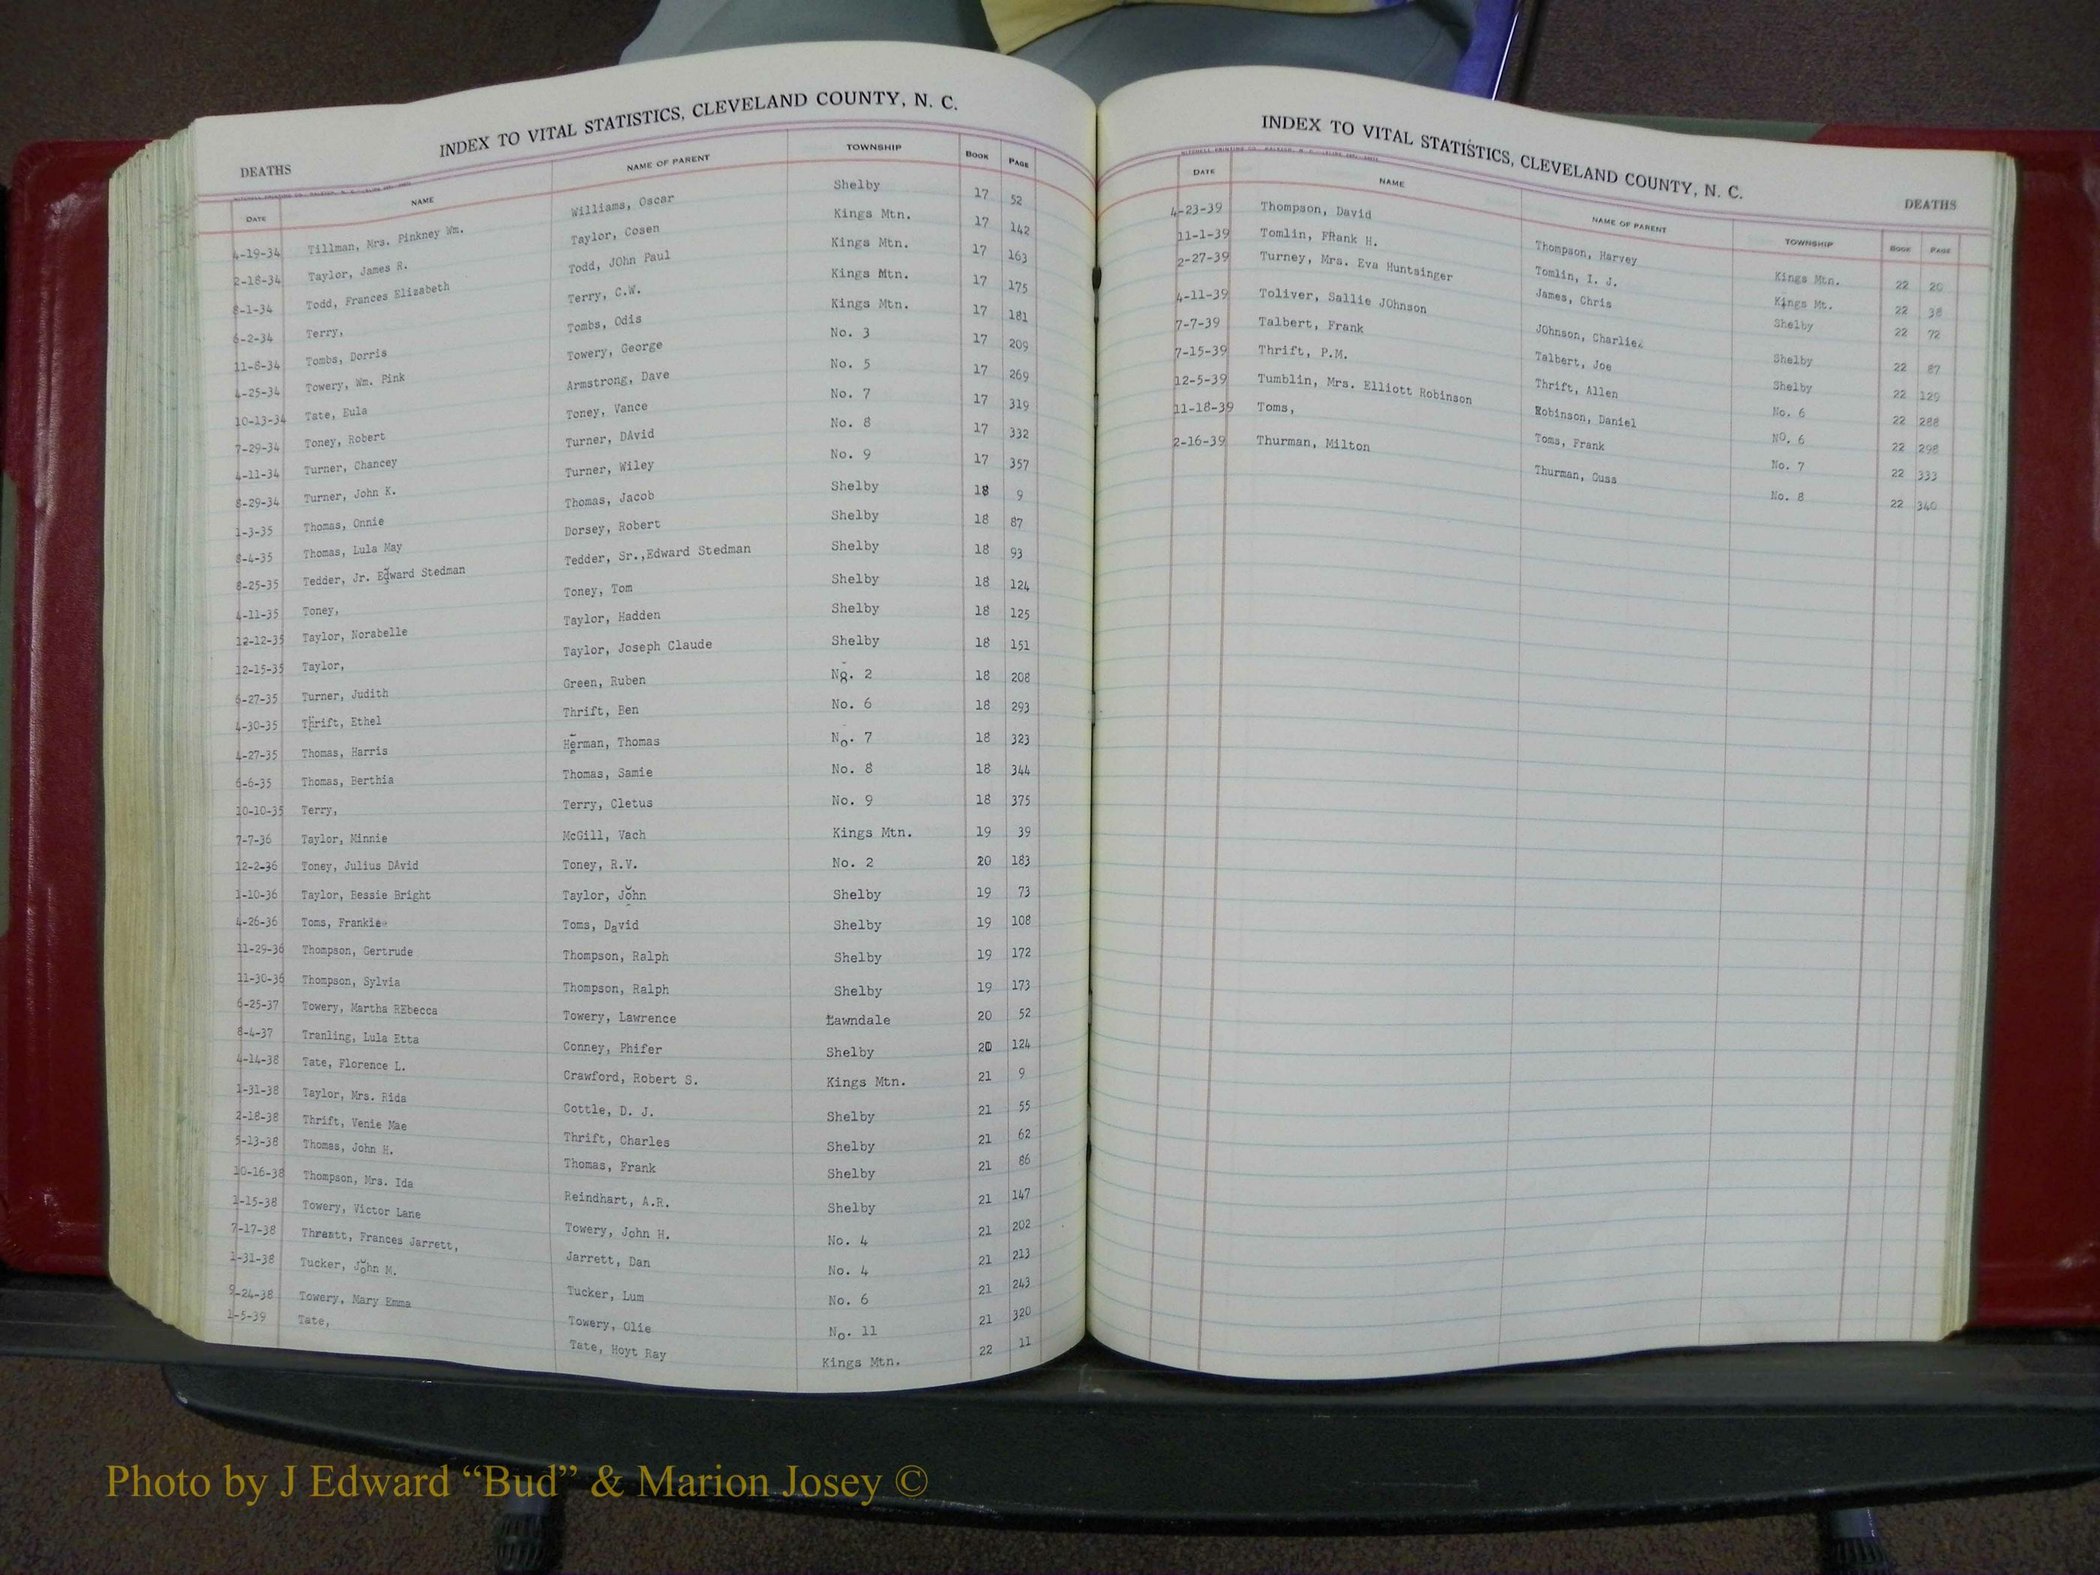 INDEX TO VITAL STATISTICS, CLEVELAND COUNTY, N. C.
DEATHS
DATE NAME NAME OF PARENT TOWNSHIP BOOK PAGE
4-19-34 Tillman, Mrs. Pinkney Wm. Williams, Oscar Shelby 17 52
2-18-34 Taylor, James R. Taylor, Cosen Kings Mtn. 17 142
8-1-34 Todd, Frances Elizabeth Todd, JOhn Paul Kings Mtn. 17 163
6-2-34 Terry, Terry, C.W. Kings Mtn. 17 175
11-8-34 Tombs, Dorris Tombs, Odis Kings Mtn. 17 181
4-25-34 Towery, Wm. Pink Towery, George No. 3 17 209
10-13-34 Tate, Eula Armstrong, Dave No. 5 17 269
7-29-34 Toney, Robert Toney, Vance No. 7 17 319
4-11-34 Turner, Chancey Turner, DAvid No. 8 17 332
8-29-34 Turner, John K. Turner, Wiley No. 9 17 357
1-3-35 Thomas, Onnie Thomas, Jacob Shelby 18 9
8-4-35 Thomas, Lula May Dorsey, Robert Shelby 18 87
8-25-35 Tedder, Jr. Edward Stedman Tedder, Sr.,Edward Stedman Shelby 18 93
4-11-35 Toney, Toney, Tom Shelby 18 124
12-12-35 Taylor, Norabelle Taylor, Hadden Shelby 18 125
12-15-35 Taylor, Taylor, Joseph Claude Shelby 18 151
6-27-35 Turner, Judith Green, Ruben No. 2 18 208
4-30-35 Thrift, Ethel Thrift, Ben No. 6 18 293
4-27-35 Thomas, Harris Herman, Thomas No. 7 18 323
6-6-35 Thomas, Berthia Thomas, Samie No. 8 18 344
10-10-35 Terry, Terry, Cletus No. 9 18 375
7-7-36 Taylor, Minnie McGill, Vach Kings Mtn. 19 39
12-2-36 Toney, Julius DAvid Toney, R.V. No. 2 20 183
1-10-36 Taylor, Bessie Bright Taylor, John Shelby 19 73
4-26-36 Toms, Frankie Toms, David Shelby 19 108
11-29-36 Thompson, Gertrude Thompson, Ralph Shelby 19 172
11-30-36 Thompson, Sylvia Thompson, Ralph Shelby 19 173
6-25-37 Towery, Martha REbecca Towery, Lawrence Lawndale 20 52
8-4-37 Tranling, Lula Etta Conney, Phifer Shelby 20 124
4-14-38 Tate, Florence L. Crawford, Robert S. Kings Mtn. 21 9
1-31-38 Taylor, Mrs. Rida Cottle, D. J. Shelby 21 55
2-18-38 Thrift, Venie Mae Thrift, Charles Shelby 21 62
5-13-38 Thomas, John H. Thomas, Frank Shelby 21 86
10-16-38 Thompson, Mrs. Ida Reindhart, A.R. Shelby 21 147
1-15-38 Towery, Victor Lane Towery, John H. No. 4 21 202
7-17-38 Threatt, Frances Jarrett, Jarrett, Dan No. 4 21 213
1-31-38 Tucker, John M. Tucker, Lum No. 6 21 243
9-24-38 Towery, Mary Emma Towery, Olie No. 11 21 320
1-5-39 Tate, Tate, Hoyt Ray Kings Mtn. 22 11
INDEX TO VITAL STATISTICS, CLEVELAND COUNTY, N. C.
DEATHS
DATE NAME NAME OF PARENT TOWNSHIP BOOK PAGE
4-23-39 Thompson, David Thompson, Harvey Kings Mtn. 22 20
11-1-39 Tomlin, FRank H. Tomlin, I. J. Kings Mt. 22 38
2-27-39 Turney, Mrs. Eva Huntsinger James, Chris Shelby 22 72
4-11-39 Toliver, Sallie JOhnson JOhnson, Charlie Shelby 22 87
7-7-39 Talbert, Frank Talbert, Joe Shelby 22 129
7-15-39 Thrift, P.M. Thrift, Allen No. 6 22 288
12-5-39 Tumblin, Mrs. Elliott Robinson Robinson, Daniel NO. 6 22 298
11-18-39 Toms, Toms, Frank No. 7 22 333
2-16-39 Thurman, Milton Thurman, Guss No. 8 22 340
Photo by J Edward “Bud” & Marion Josey ©